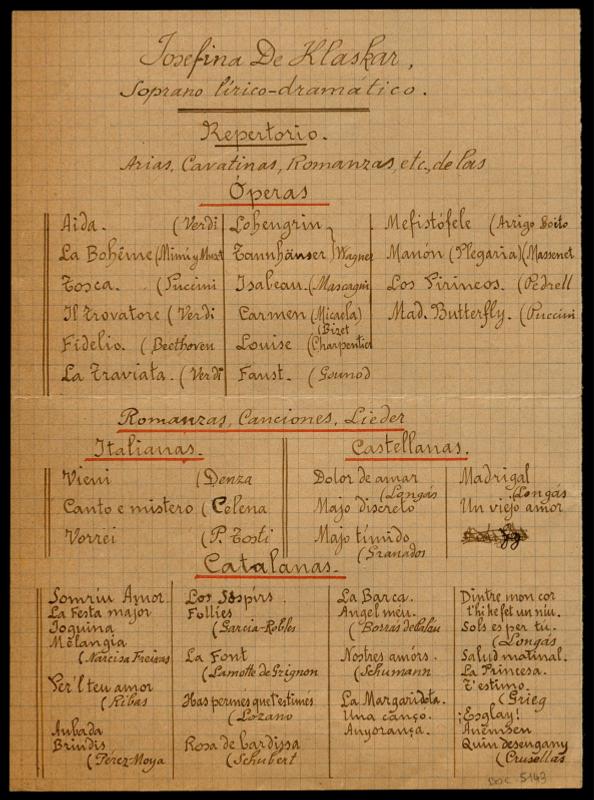 Josefina De Klaskar,
Soprano lírico-dramático.
Repertorio.
Arias, Cavatinas, Romanzas, etc, de las
Óperas
Aida. (Verdi
La Bohême (Mimí y Muset
Tosca. (Puccini
Il Trovatore (Verdi
Fidelio. (Beethoven
La Traviata. (Verdi
Lohengrin
Tannhäuser } Wagner
Isabeau. (Mascagni
Carmen (Micaela)
(Bizet
Louise (Charpentier
Faust. (Gounod
Mefistófele (Arrigo Boito
Manón (Plegaria) (Massenet
Los Pirineos. (Pedrell
Mad. Butterfly. (Puccini
Romanzas, Canciones, Lieder
Italianas.
Vieni (Denza
Canto e mistero (Colena
Vorrei (P. Tosti
Castellanas.
Dolor de amar
(Longás
Majo discreto
Majo tímido
(Granados
Madrigal
(Longás
Un viejo amor
Catalanas.
Somriu Amor
La Festa major
Joguina
Melangia
(Narcisa Freixas
Per'l teu amor
(Ribas
Aubada
Brindis
(Pérez-Moya
Los Sospirs.
Follies
(Garcia-Robles
La Font
(Lamotte de Grignon
Has permes que t'estimés
(Lozano
Rosa de bardissa
(Schubert
La Barca.
Angel meu.
(Borrás de Palau
Nostres amórs.
(Schumann
La Margaridota.
Una canço.
Anyorança.
Dintre mon cor
t'hi he fet un niu.
Sols es per tu.
(Longás
Salud matinal.
La Princesa.
T'estimo.
(Grieg
¡Esglay!
Anemsen
Quin desengany
(Crusellas
DOC. 5143